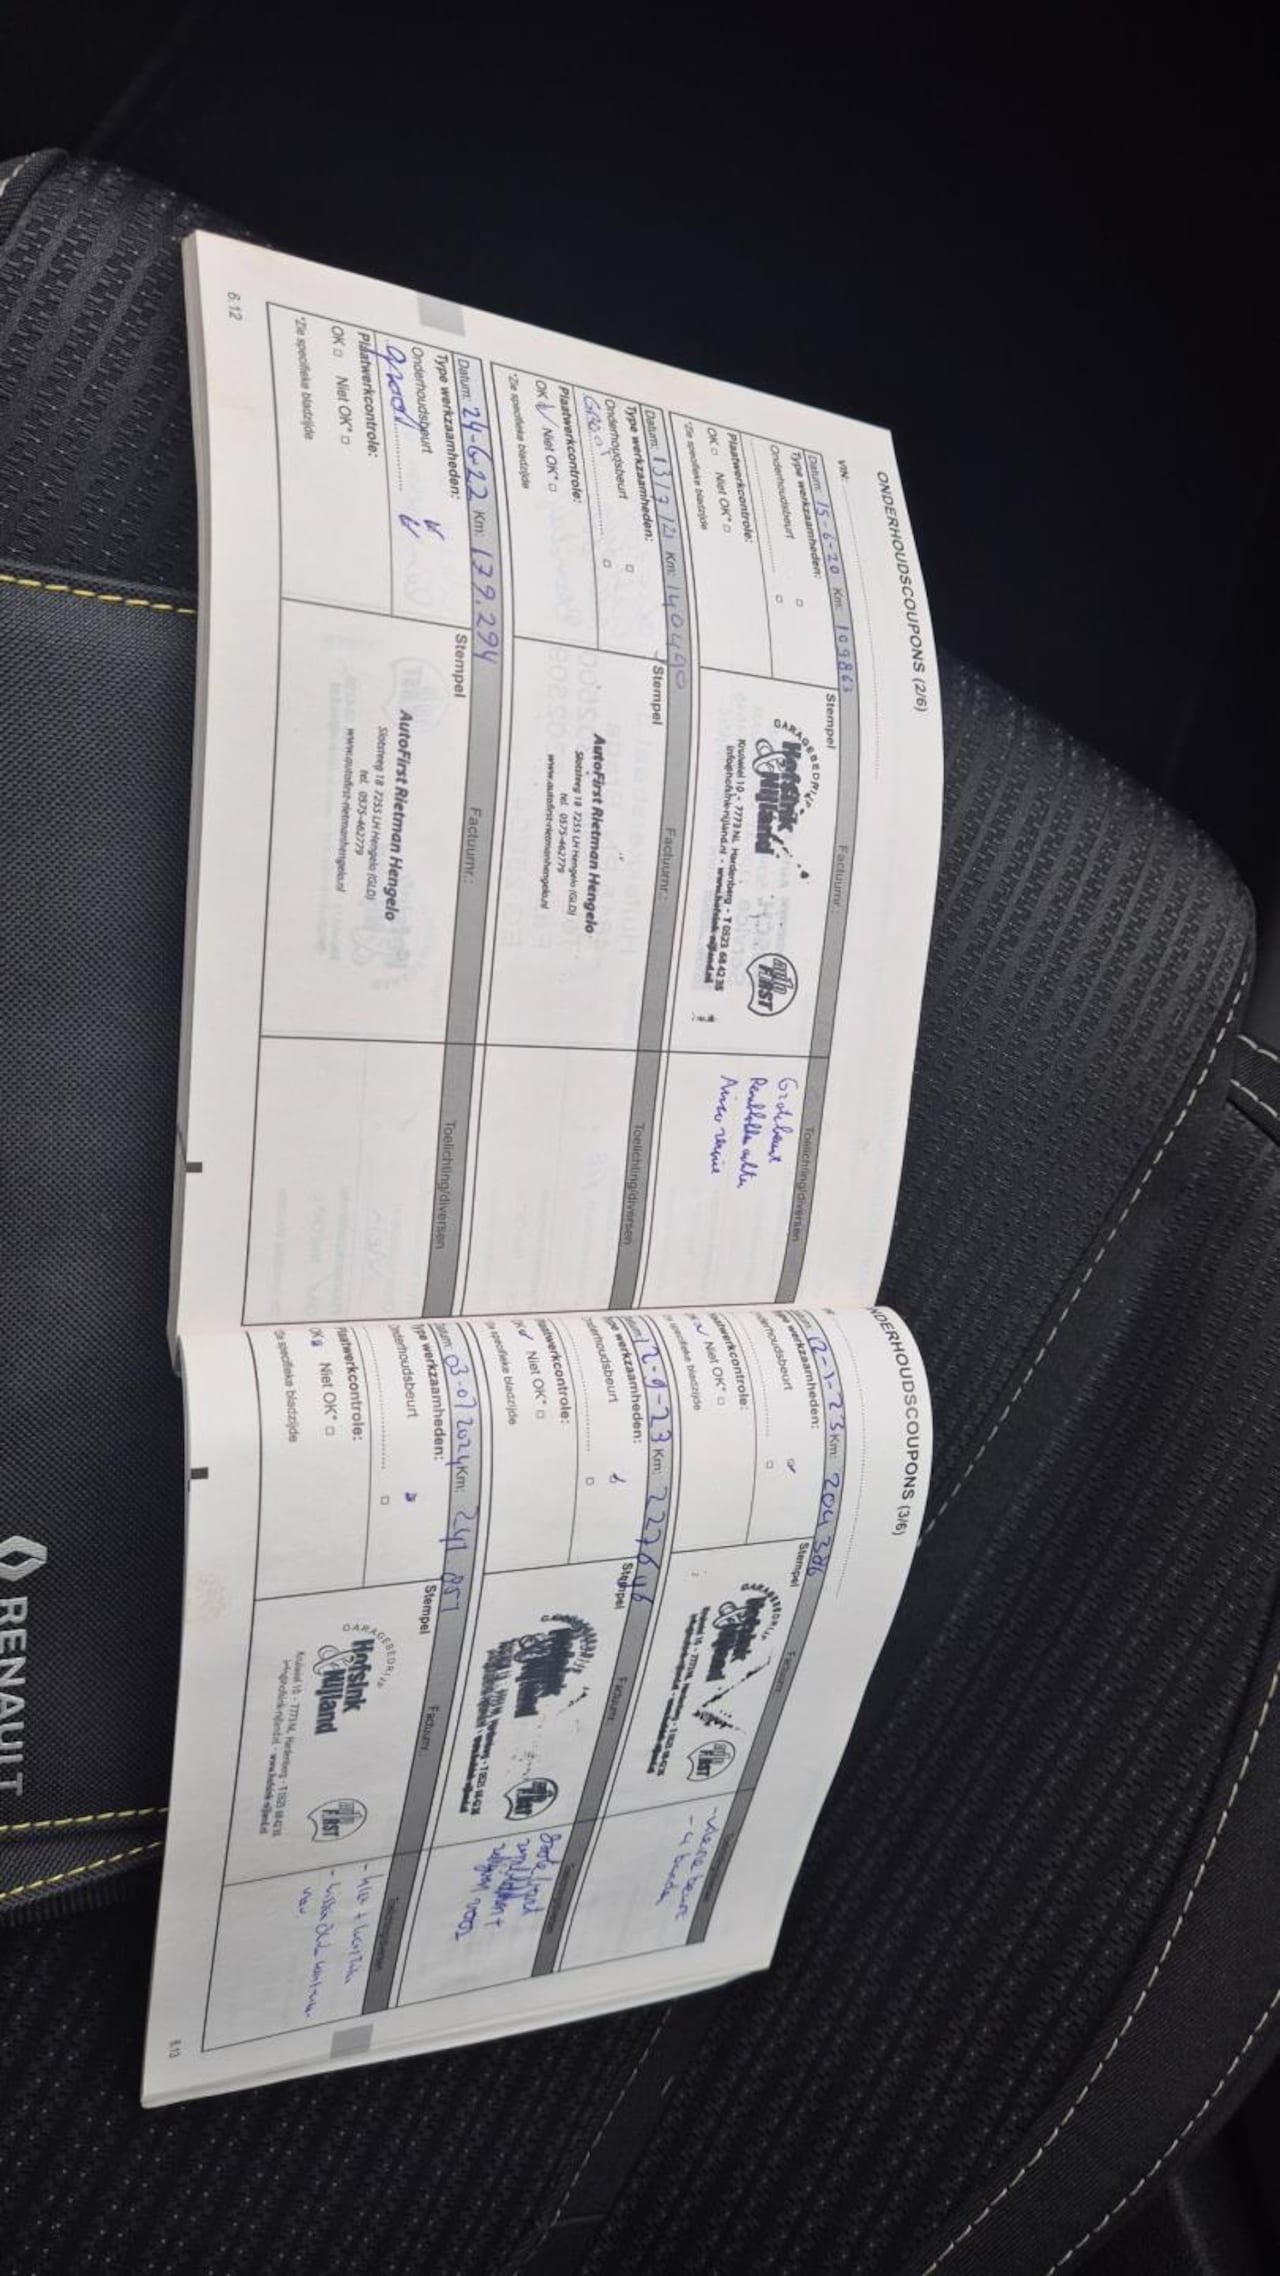 ONDERHOUDSCOUPONS (2/6)
VIN:
Datum: 15-6-20 Km: 109863 Factuurnr.: Toelichting/diversen
Type werkzaamheden: Stempel
Onderhoudsbeurt
Plaatwerkcontrole:
OK Niet OK*
*Zie specifieke bladzijde
GARAGEBEDRIJF
Hofsink
& Nijland
Kruiwiel 10 - 7773 NL Hardenberg - T 0523 68 42 38
info@hofsink-nijland.nl - www.hofsink-nijland.nl
auto
FIRST
Grote beurt
achter
Airco
Datum: 13/7/21 Km: 140490 Factuurnr.: Toelichting/diversen
Type werkzaamheden: Stempel
Onderhoudsbeurt
Groot
Plaatwerkcontrole:
OK Niet OK*
*Zie specifieke bladzijde
AutoFirst Rietman Hengelo
Slotsteeg 18 7255 LH Hengelo (GLD)
tel. 0575-462779
www.autofirst-rietmanhengelo.nl
Datum: 24-6-22 Km: 179.294 Factuurnr.: Toelichting/diversen
Type werkzaamheden: Stempel
Onderhoudsbeurt
groot
Plaatwerkcontrole:
OK Niet OK*
*Zie specifieke bladzijde
AutoFirst Rietman Hengelo
Slotsteeg 18 7255 LH Hengelo (GLD)
tel. 0575-462779
www.autofirst-rietmanhengelo.nl
6.12
NDERHOUDSCOUPONS (3/6)
12-1-23 Km: 204386 Factuurnr.
werkzaamheden: Stempel
nderhoudsbeurt
aatwerkcontrole:
Niet OK*
specifieke bladzijde
FIRST
- kleine beurt
- 4 banden
12-9-23 Km: 227646 Factuurnr.:
werkzaamheden: Stempel
nderhoudsbeurt
aatwerkcontrole:
Niet OK*
specifieke bladzijde
FIRST
Grote beurt
03.07 2024 Km: 241 857 Factuurnr.:
Type werkzaamheden: Stempel
Onderhoudsbeurt
Plaatwerkcontrole:
OK Niet OK*
specifieke bladzijde
GARAGEBEDRIJF
Hofsink
& Nijland
Kruiwiel 10 - 7773 NL Hardenberg - T 0523 68 42 38
info@hofsink-nijland.nl - www.hofsink-nijland.nl
auto
FIRST
6.13
RENAULT